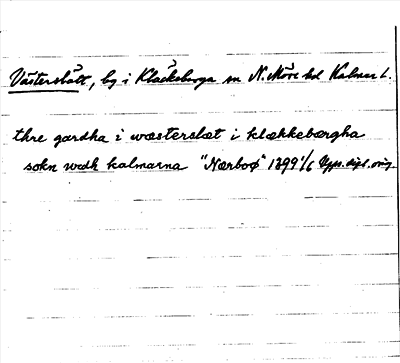 Västerslätt, by i Kläckeberga sn N. Möre hd Kalmar l.
thre gardha i wæsterslæt i klækkebærgha
sokn widh kalmarna "Nærboø" 1399 1/6 Upps. dipl. orig.